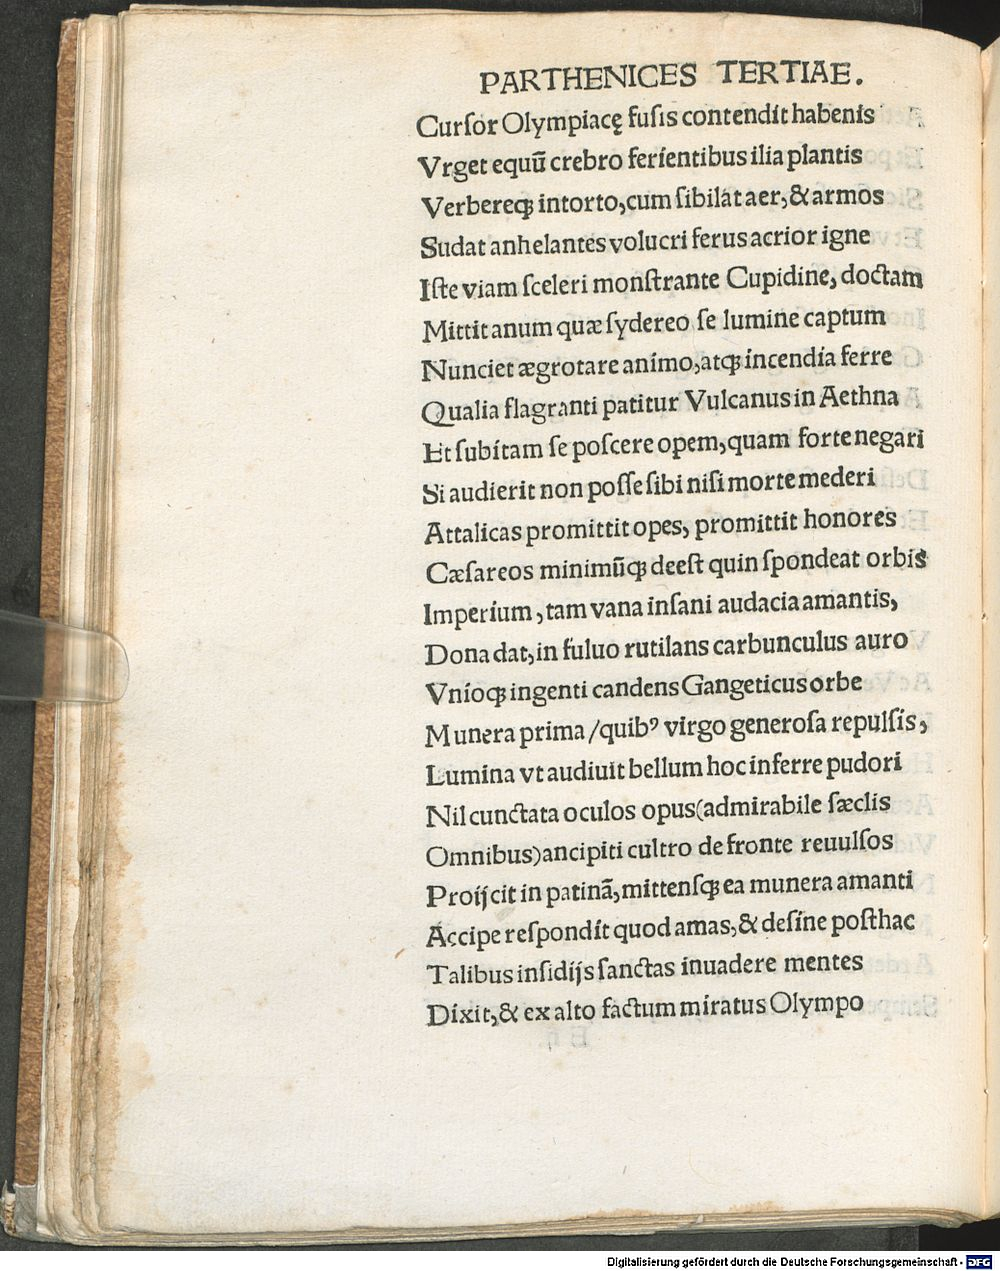 PARTHENICES TERTIAE.
Curſor Olympiacę fuſis contendit habenis
Vrget equū crebro ferientibus ilia plantis
Verbereqꝫ intorto,cum ſibilat aer,& armos
Sudat anhelantes volucri ferus acrior igne
Iſte viam ſceleri monſtrante Cupidine, doctam
Mittit anum quæ ſydereo ſe lumine captum
Nunciet ægrotare animo,atqꝫ incendia ferre
Qualia flagranti patitur Vulcanus in Aethna
Et ſubitam ſe poſcere opem,quam forte negari
Si audierit non poſſe ſibi niſi morte mederi
Attalicas promittit opes, promittit honores
Cæſareos minimūqꝫ deeſt quin ſpondeat orbis
Imperium ,tam vana inſani audacia amantis,
Dona dat,in fuluo rutilans carbunculus auro
Vnioqꝫ ingenti candens Gangeticus orbe
Munera prima /quibꝰ virgo generoſa repulſis,
Lumina vt audiuit bellum hoc inferre pudori
Nil cunctata oculos opus(admirabile ſæclis
Omnibus)ancipiti cultro de fronte reuulſos
Proijcit in patinā,mittenſqꝫ ea munera amanti
Accipe reſpondit quod amas,& deſine poſthac
Talibus inſidijs ſanctas inuadere mentes
Dixit,& ex alto factum miratus Olympo
Digitalisierung gefördert durch die Deutsche Forschungsgemeinschaft - DFG